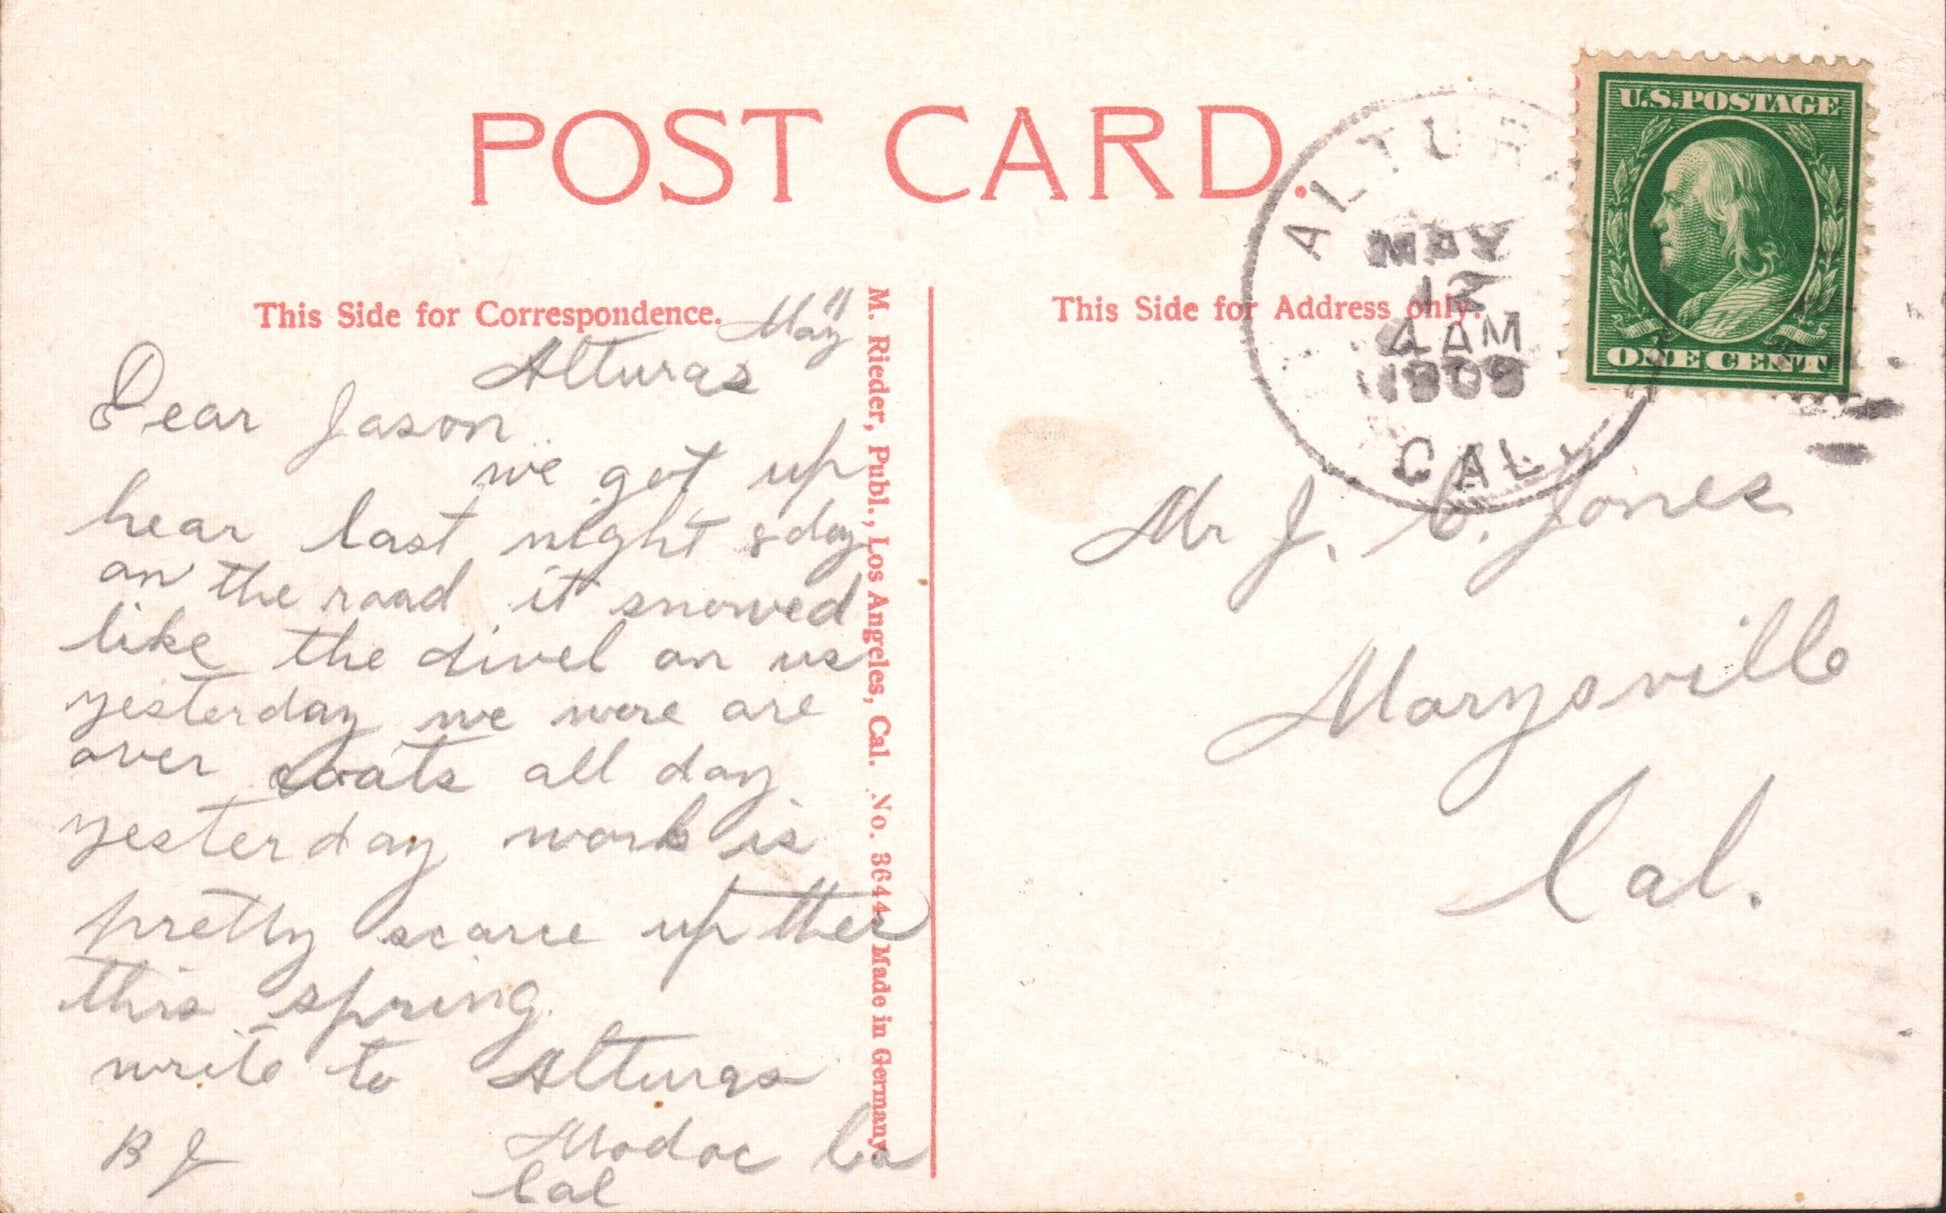 POST CARD.
U.S. POSTAGE
ONE CENT
ALTUR
MAY
12
4 AM
1909
CAL.
This Side for Correspondence.
This Side for Address only.
May 11
Alturas
Dear Jason
we got up
hear last night & day
on the road it snowed
like the divel on us
yesterday we wore are
over coats all day
yesterday work is
pretty scarce up ther
this spring.
write to Alturas
Modoc Co
Cal
B J
M. Rieder, Publ., Los Angeles, Cal. No. 3644. Made in Germany.
Mr J. C. Jones
Marysville
Cal.